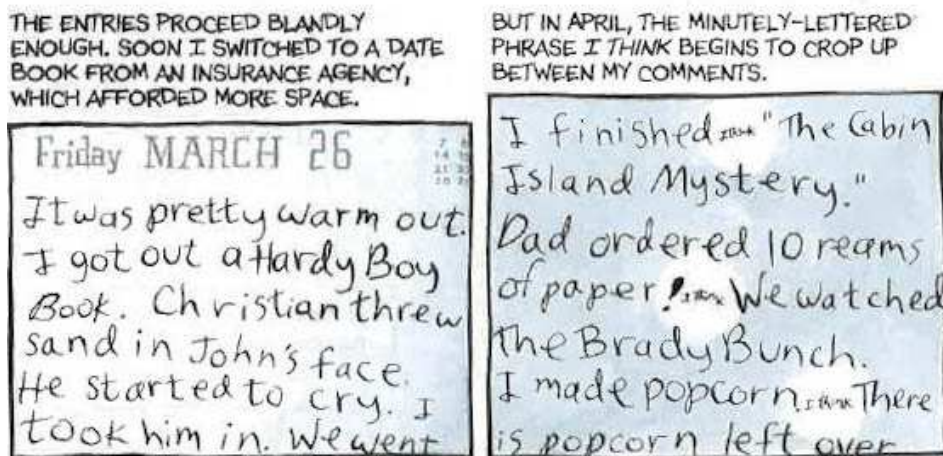 THE ENTRIES PROCEED BLANDLY
ENOUGH. SOON I SWITCHED TO A DATE
BOOK FROM AN INSURANCE AGENCY,
WHICH AFFORDED MORE SPACE.
Friday MARCH 26
It was pretty warm out.
I got out a Hardy Boy
Book. Christian threw
sand in John's face.
He started to cry. I
took him in. We went
BUT IN APRIL, THE MINUTELY-LETTERED
PHRASE I THINK BEGINS TO CROP UP
BETWEEN MY COMMENTS.
I finished I think "The Cabin
Island Mystery."
Dad ordered 10 reams
of paper! I think We watched
The Brady Bunch.
I made popcorn. I think There
is popcorn left over